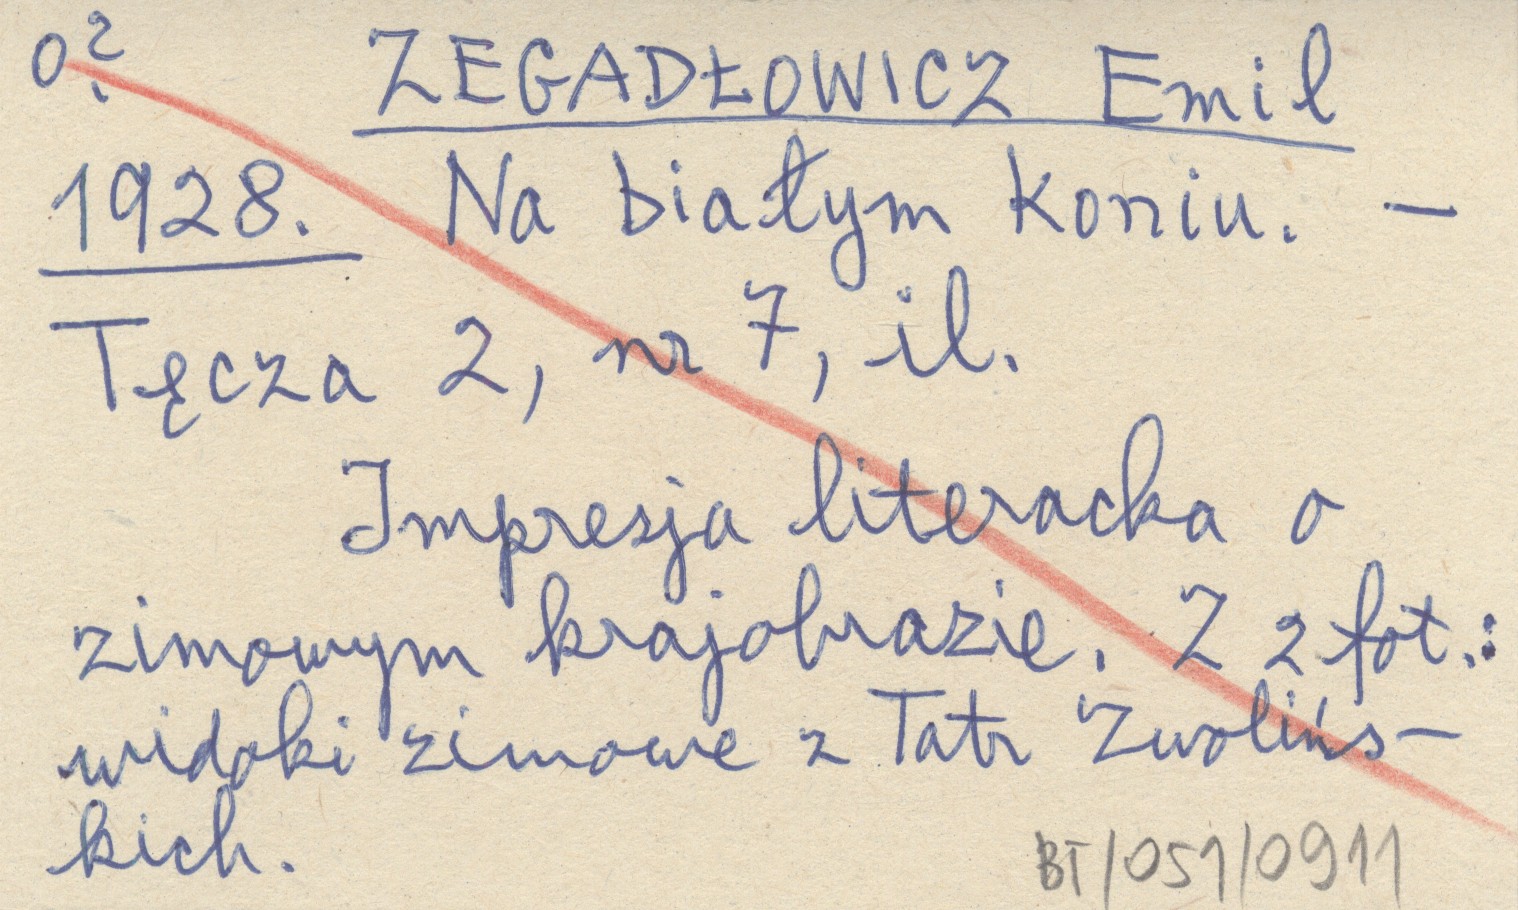 o? ZEGADŁOWICZ Emil
1928. Na białym koniu. –
Tęcza 2, nr 7, il.
Impresja literacka o
zimowym krajobrazie. Z 2 fot.:
widoki zimowe z Tatr Zwolińs-
kich.
BT/051/0911